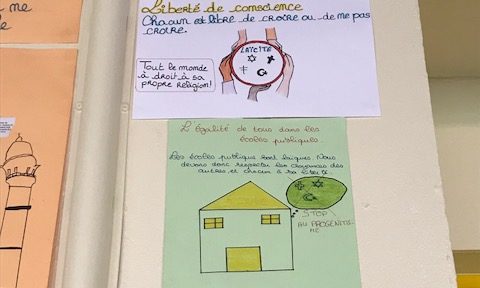 Liberté de conscience
Chacun est libre de croire ou de ne pas
croire.
LAÏCITÉ
Tout le monde
à droit à sa
propre religion!
me
re
L'égalité de tous dans les
écoles publiques
Les écoles publiques sont laïques. Nous
devons donc respecter les croyances des
autres et chacun à sa liberté.
STOP
AU PROGÉNITIS-
ME